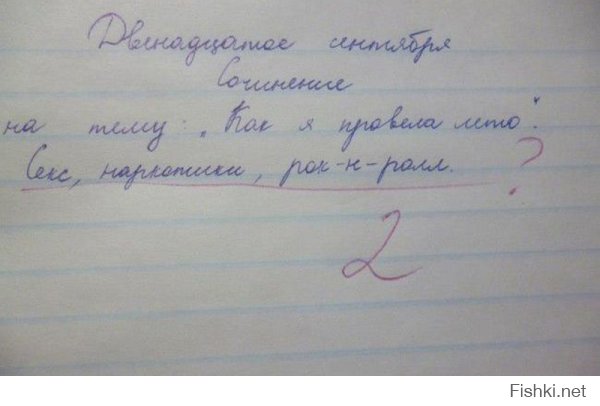 Двенадцатое сентября
Сочинение
на тему: „Как я провела лето".
Секс, наркотики, рок-н-ролл. ?
2
Fishki.net